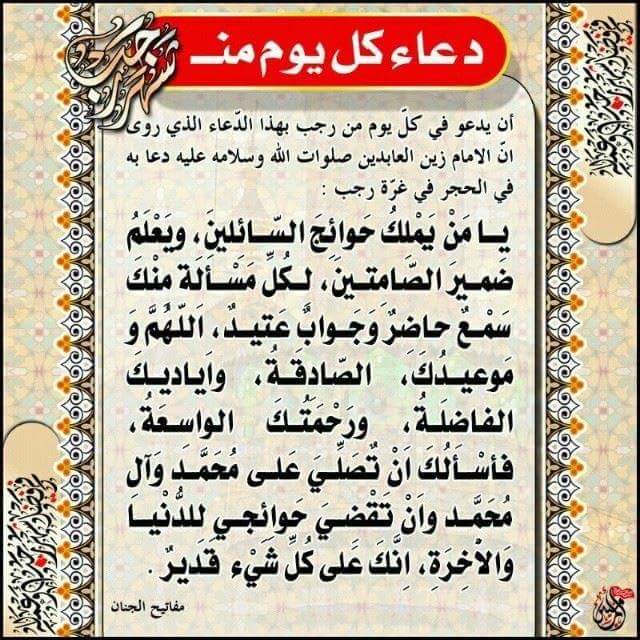 دعاء كل يوم منـ
شهر رجب
أن يدعو في كلّ يوم من رجب بهذا الدّعاء الذي روى
انّ الامام زين العابدين صلوات الله وسلامه عليه دعا به
في الحجر في غرّة رجب :
يـا مَنْ يَمْلكُ حَوائِجَ السّـائلينَ، ويَعْلَمُ
ضميرَ الصّامتـينَ، لـكُلِّ مَسْـألَة منْكَ
سَمْـعٌ حاضرٌ وَجَـوابٌ عتيـدٌ، اَللّهُمَّ وَ
مَوعيـدُكَ، الصّادقـةُ، واَياديـكَ
الفاضلَـةُ، ورَحْمَتُـكَ الواسعَـةُ،
فأسْـألُكَ اَنْ تُصَلِّيَ عَلى مُحَمَّـد وَآل
مُحَمَّـد وانْ تَقْضيَ حَوائجي للدُّنْيـا
وَالاْخرَةِ، انَّكَ عَلى كُلِّ شَيْءٍ قَديرٌ .
مفاتيح الجنان